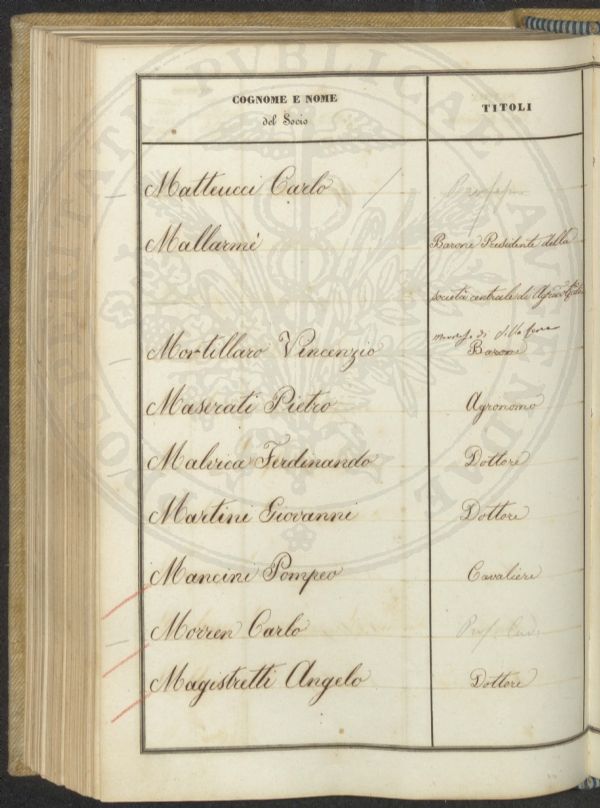 COGNOME E NOME
del Socio
TITOLI
Matteucci Carlo
Mallarmé Barone Presidente della
società centrale di
Mortillaro Vincenzio Marchese di Villa Barone
Maserati Pietro Agronomo
Malvica Ferdinando Dottore
Martini Giovanni Dottore
Mancini Pompeo Cavaliere
Morren Carlo Prof.
Magistretti Angelo Dottore
PROSPERITATI PUBLICAE AUGENDAE